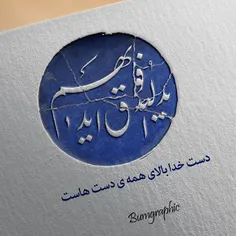 یدالله فوق ایدیهم
دست خدا بالای همه ی دست هاست
Bumgraphic